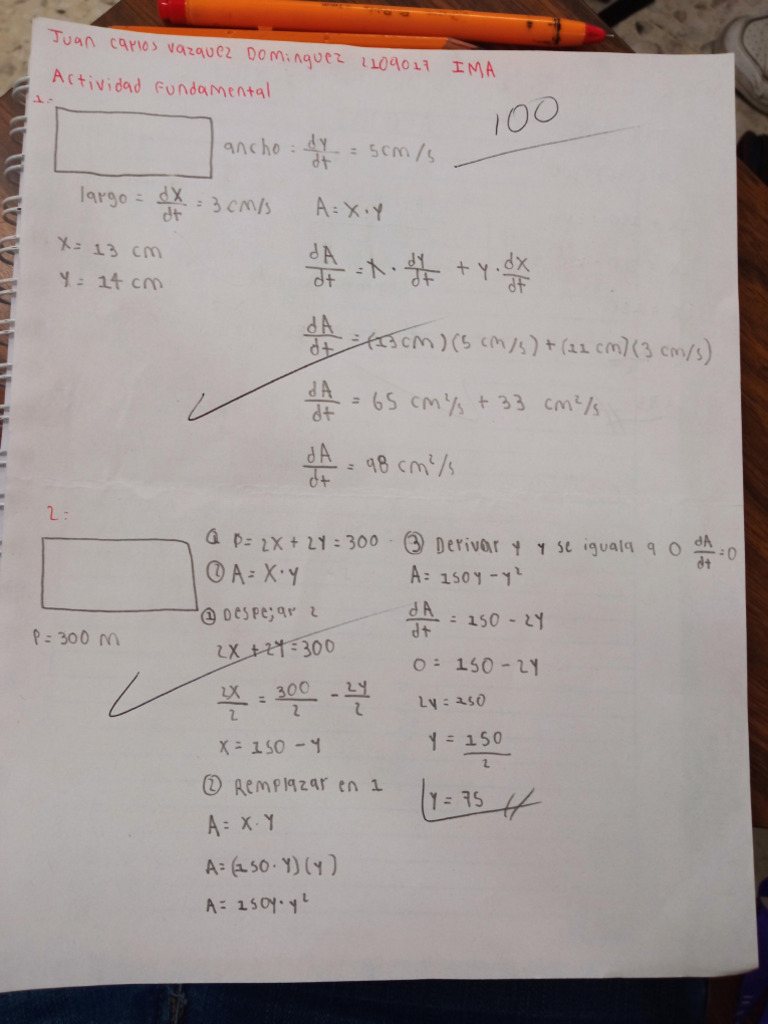 Juan Carlos Vazquez Dominguez 2109017 IMA
Actividad Fundamental
100
1:
ancho = dy/dt = 5cm/s
largo = dx/dt = 3 cm/s
A = X · Y
X = 13 cm
Y = 14 cm
dA/dt = X · dy/dt + Y · dx/dt
dA/dt = (13 cm)(5 cm/s) + (11 cm)(3 cm/s)
dA/dt = 65 cm²/s + 33 cm²/s
dA/dt = 98 cm²/s
2:
P = 300 m
① P = 2X + 2Y = 300
② A = X · Y
① Despejar 2
2X + 2Y = 300
2X/2 = 300/2 - 2Y/2
X = 150 - Y
② Remplazar en 1
A = X · Y
A = (150 · Y)(Y)
A = 150Y · Y²
③ Derivar y y se iguala a 0 dA/dt = 0
A = 150Y - Y²
dA/dt = 150 - 2Y
0 = 150 - 2Y
2Y = 150
Y = 150/2
Y = 75